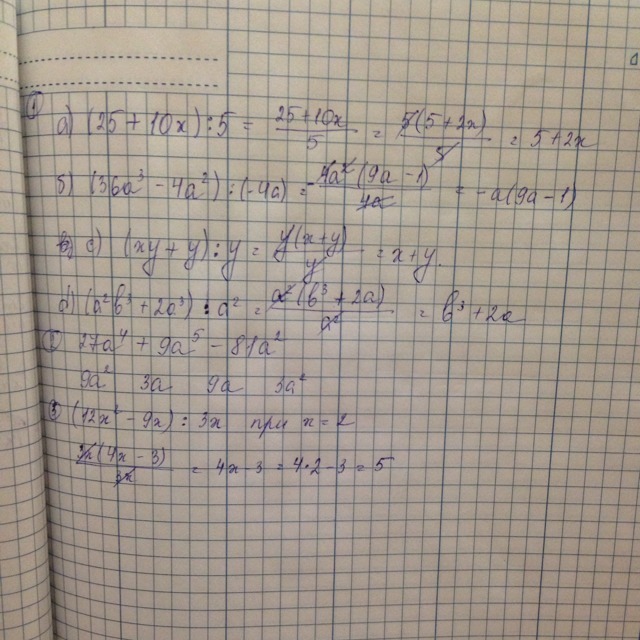 1
а) (25 + 10x) : 5 = 25+10x / 5 = 5(5+2x) / 5 = 5+2x
б) (36a³ - 4a²) : (-4a) = - 4a²(9a-1) / 4a = -a(9a-1)
c) (xy+y) : y = y(x+y) / y = x+y.
d) (a²b³ + 2a³) : a² = a²(b³+2a) / a² = b³+2a
2 27a⁴ + 9a⁵ - 81a²
9a² 3a 9a 3a²
3 (12x² - 9x) : 3x при x = 2
3x(4x-3) / 3x = 4x-3 = 4·2-3 = 5